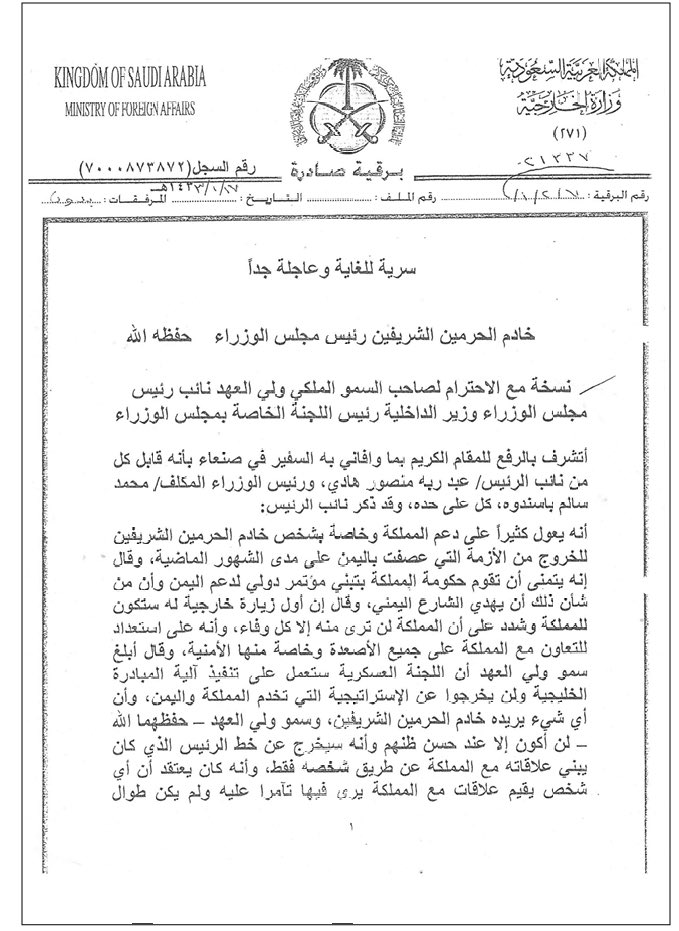 KINGDOM OF SAUDI ARABIA
MINISTRY OF FOREIGN AFFAIRS
المملكة العربية السعودية
وزارة الخارجية
(٢٧١)
رقم السجل(٧٠٠٠٨٧٣٨٧٢)
برقية صادرة
٠٢١٣٢٧
رقم البرقية :
رقم الملف :
التاريخ :
هـ
المرفقات : بدون
سرية للغاية وعاجلة جداً
خادم الحرمين الشريفين رئيس مجلس الوزراء حفظه الله
نسخة مع الاحترام لصاحب السمو الملكي ولي العهد نائب رئيس
مجلس الوزراء وزير الداخلية رئيس اللجنة الخاصة بمجلس الوزراء
أتشرف بالرفع للمقام الكريم بما وافاني به السفير في صنعاء بأنه قابل كل
من نائب الرئيس/ عبد ربه منصور هادي، ورئيس الوزراء المكلف/ محمد
سالم باسندوه، كل على حده، وقد ذكر نائب الرئيس:
أنه يعول كثيراً على دعم المملكة وخاصة بشخص خادم الحرمين الشريفين
للخروج من الأزمة التي عصفت باليمن على مدى الشهور الماضية، وقال
إنه يتمنى أن تقوم حكومة المملكة بتبني مؤتمر دولي لدعم اليمن وأن من
شأن ذلك أن يهدي الشارع اليمني، وقال إن أول زيارة خارجية له ستكون
للمملكة وشدد على أن المملكة لن ترى منه إلا كل وفاء، وأنه على استعداد
للتعاون مع المملكة على جميع الأصعدة وخاصة منها الأمنية، وقال أبلغ
سمو ولي العهد أن اللجنة العسكرية ستعمل على تنفيذ آلية المبادرة
الخليجية ولن يخرجوا عن الإستراتيجية التي تخدم المملكة واليمن، وأن
أي شيء يريده خادم الحرمين الشريفين، وسمو ولي العهد – حفظهما الله
– لن أكون إلا عند حسن ظنهم وأنه سيخرج عن خط الرئيس الذي كان
يبني علاقاته مع المملكة عن طريق شخصه فقط، وأنه كان يعتقد أن أي
شخص يقيم علاقات مع المملكة يرى فيها تآمرا عليه ولم يكن طوال
١